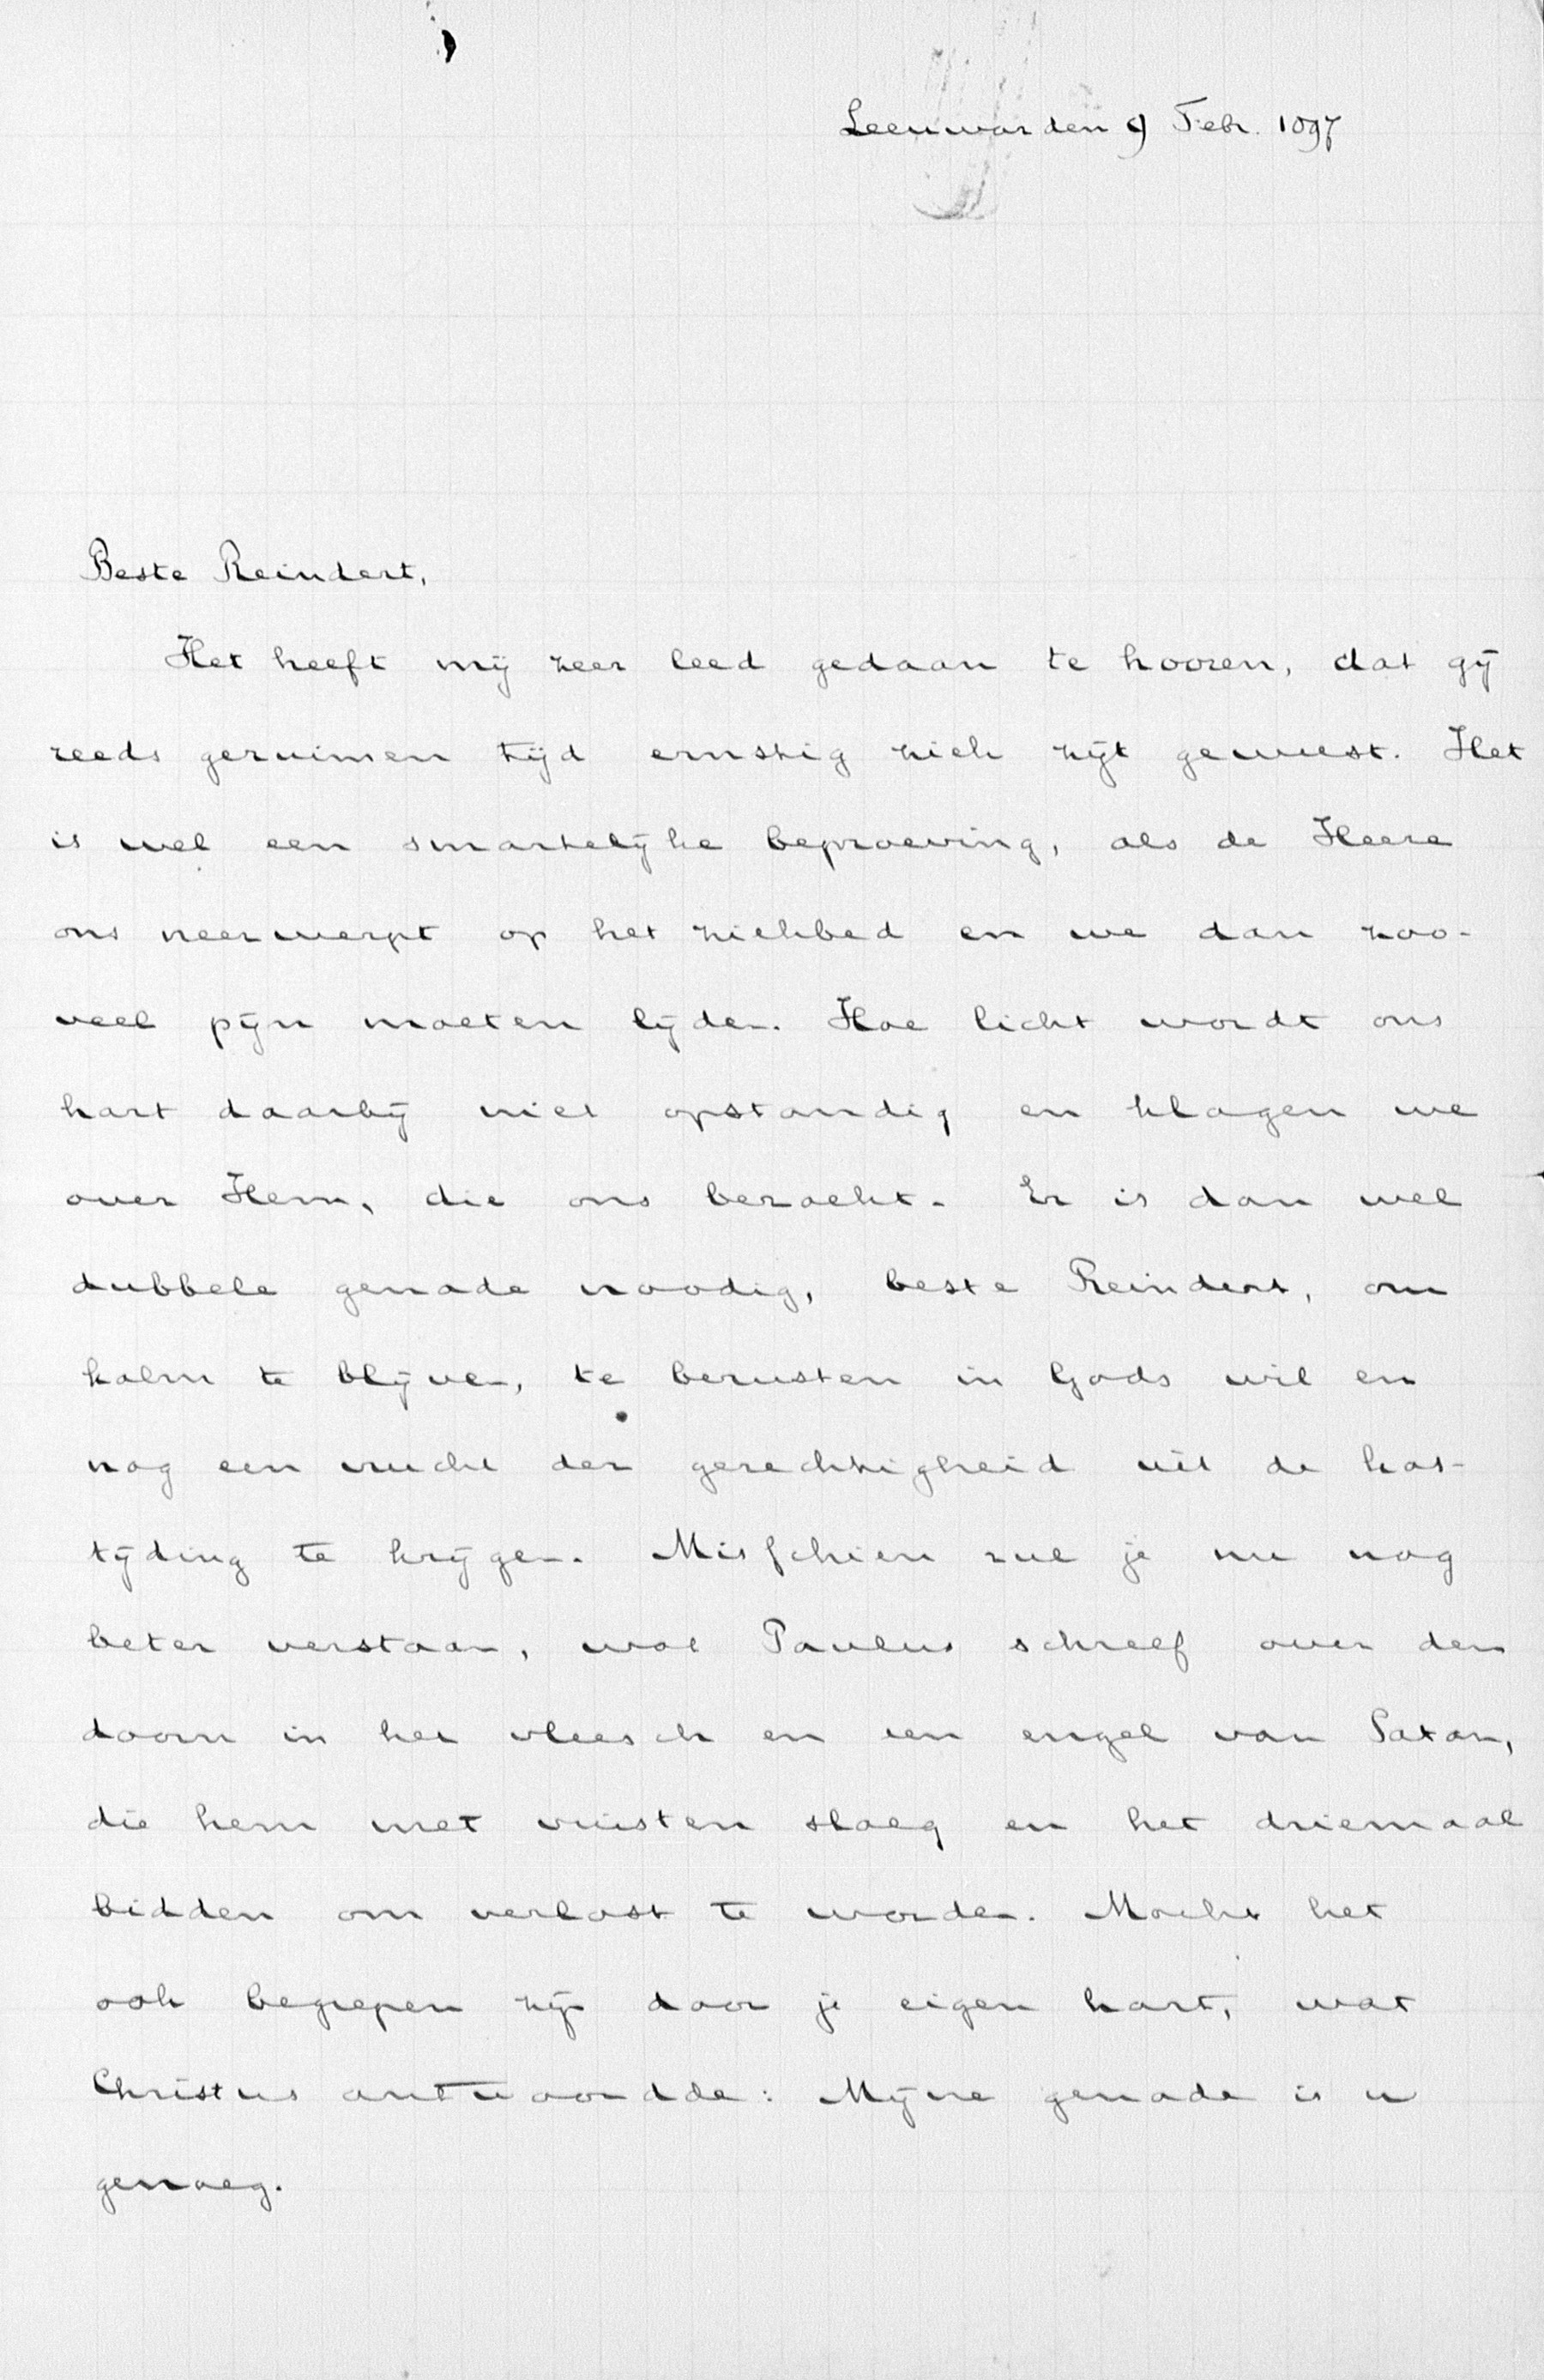 Leeuwarden 9 Febr. 1897
Beste Reindert,
Het heeft mij zeer leed gedaan te hooren, dat gij
reeds geruimen tijd ernstig ziek zijt geweest. Het
is wel een smartelijke beproeving, als de Heere
ons neerwerpt op het ziekbed en we dan zoo-
veel pijn moeten lijden. Hoe licht wordt ons
hart daarbij niet opstandig en klagen we
over Hem, die ons bezoekt. Er is dan wel
dubbele genade noodig, beste Reindert, om
kalm te blijven, te berusten in Gods wil en
nog een vrucht der gerechtigheid uit de kas-
tijding te krijgen. Misschien zul je nu nog
beter verstaan, wat Paulus schreef over den
doorn in het vleesch en een engel van Satan,
die hem met vuisten sloeg en het driemaal
bidden om verlost te worden. Mocht het
ook begrepen zijn door je eigen hart, wat
Christus antwoordde: Mijne genade is u
genoeg.